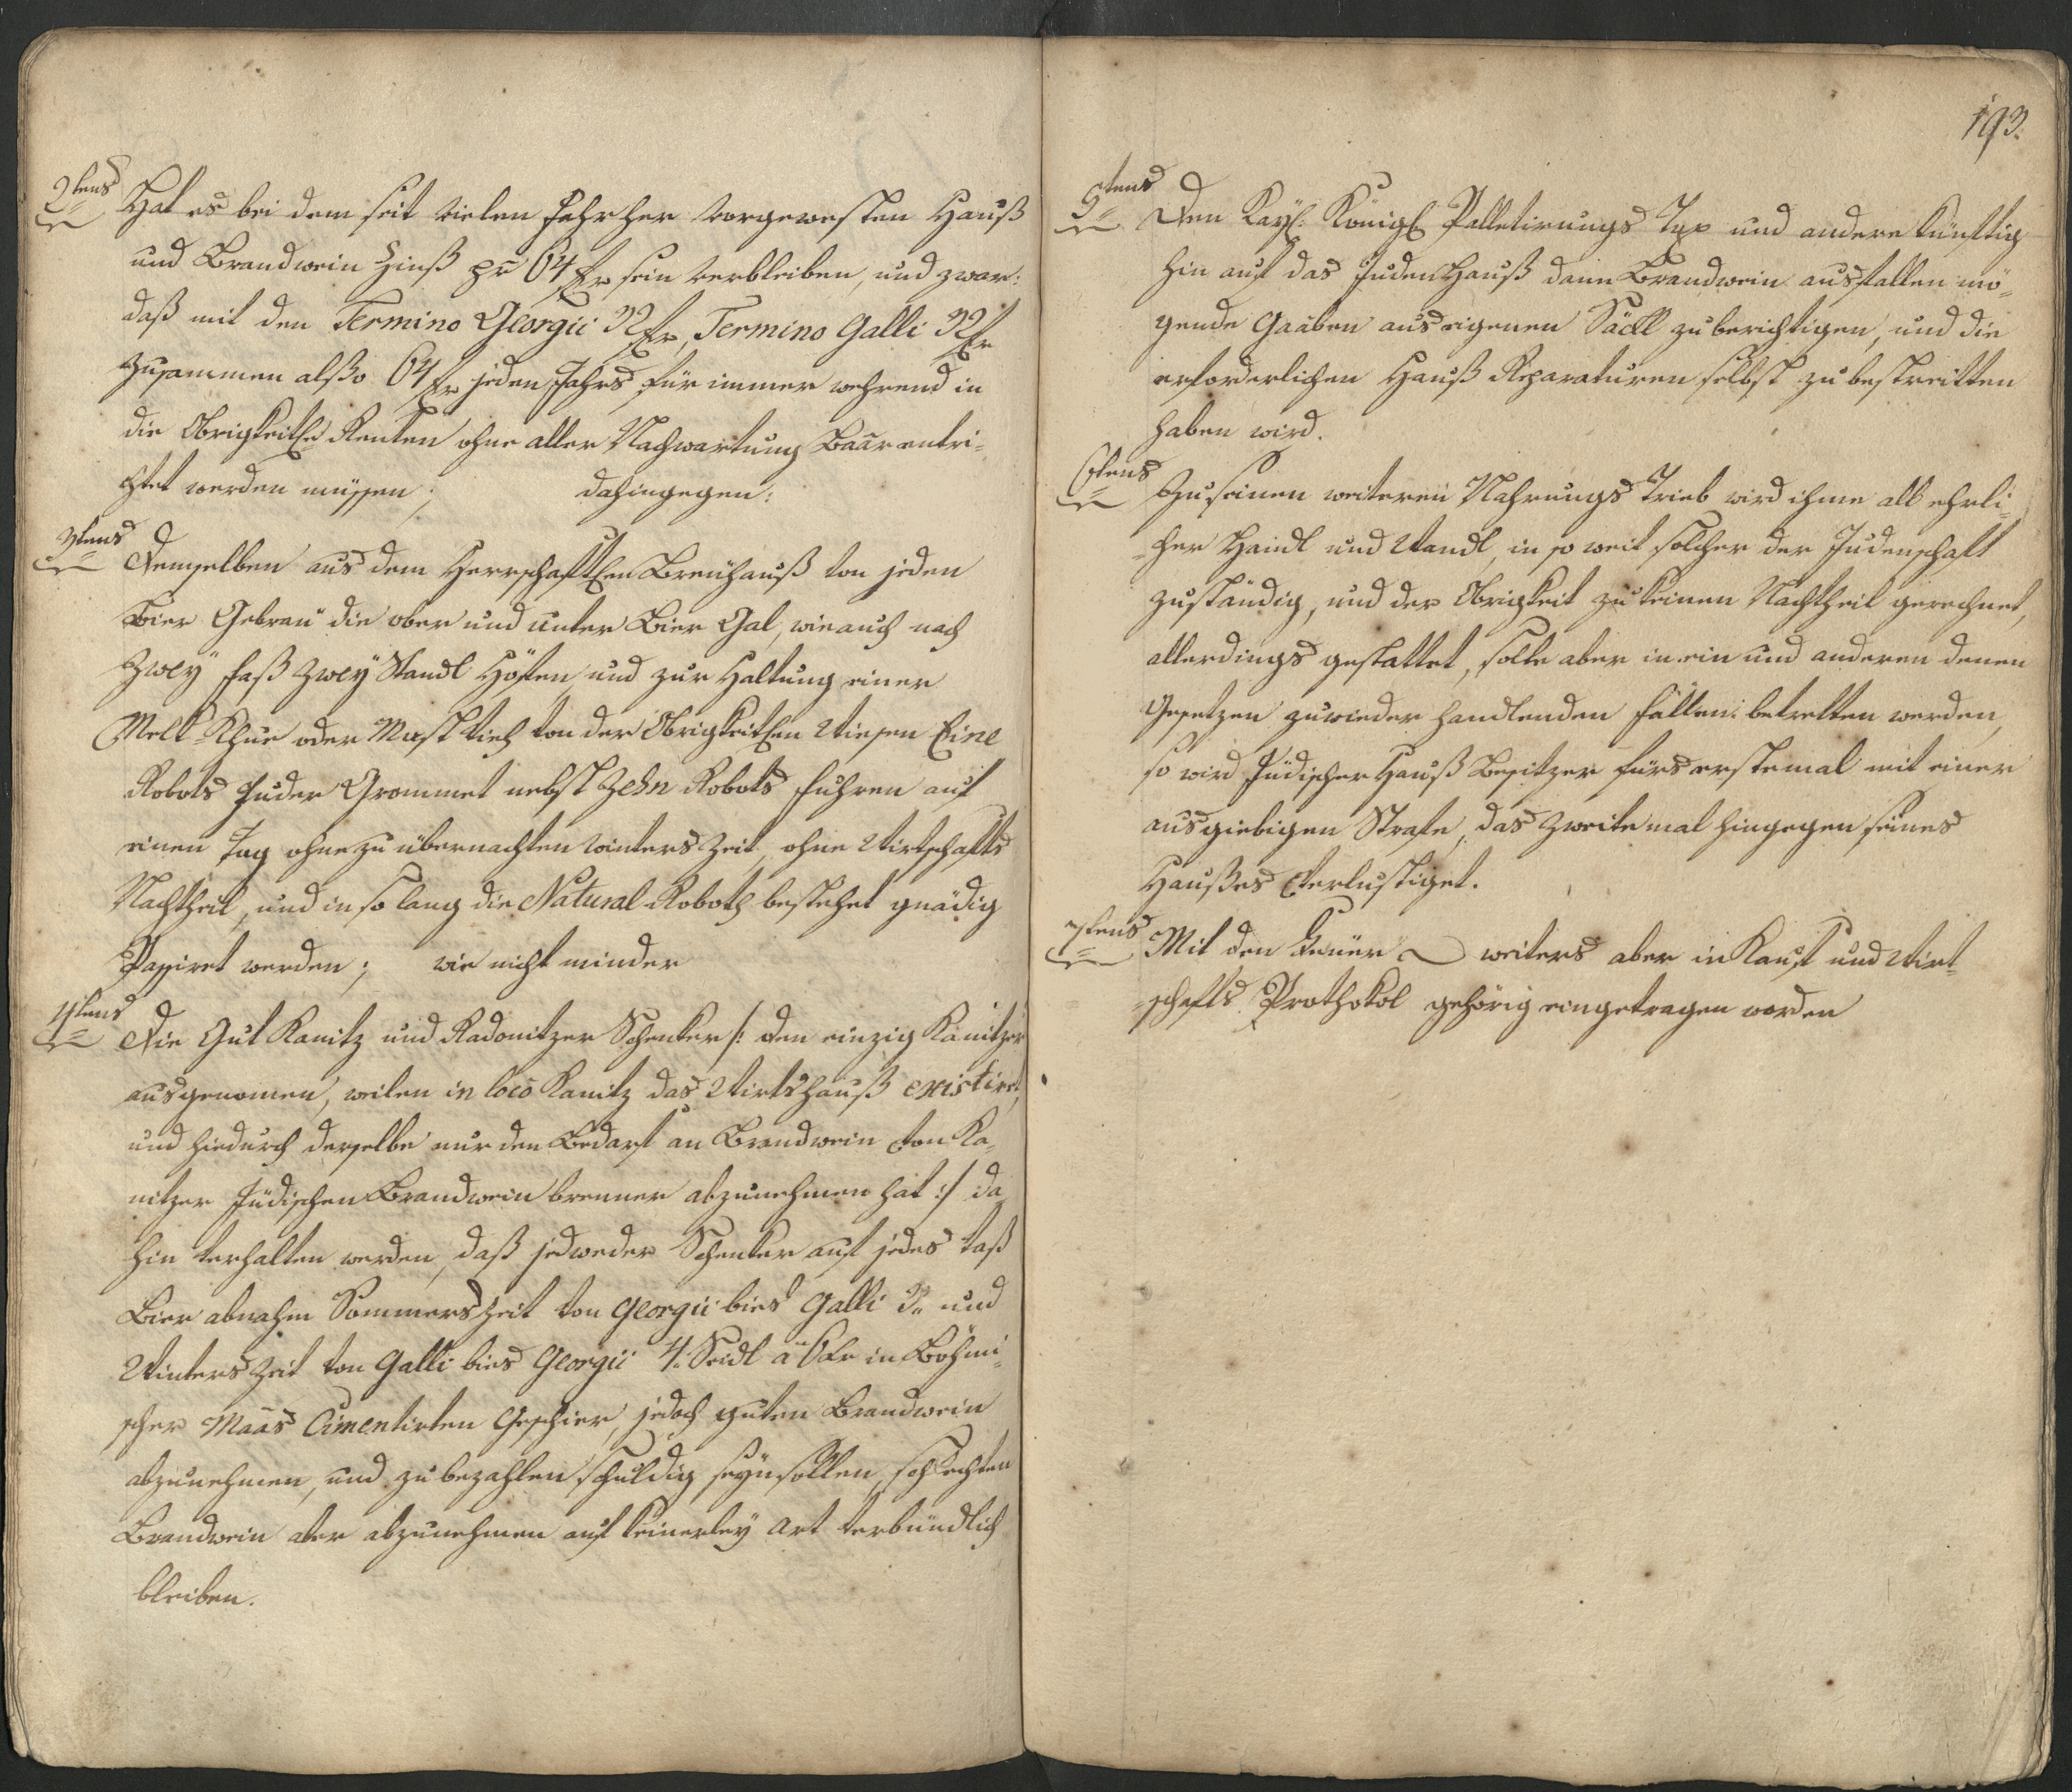 2tens Hat es bei dem seit vielen Jahrher vorgewesten Hauß
und Brandwein Zinß pr 64 fr sein verbleiben, und zwar:
daß mit den Termino Georgii 32 fr, Termino Galli 32 fr
Zusammen alßo 64 fr jeden Jahrs für immer wehrend in
die Obrigkeitln Renten ohne aller Nachwartung Baar entri-
chtet werden müssen; dahingegen:
3tens Demselben aus dem Herrschaftlen Breuhauß von jeden
Bier Gebräu die ober und unter Bier Gal, wie auch nach
Zwey Faß Zwey Standl Höfen und zur Haltung einer
Melk Khue oder Mastvieh von der Obrigkeitlen Wiesen Eine
Robots Fuder Grommet nebst Zehn Robots Fuhren auf
einen Tag ohne zu übernachten Winters Zeit, ohne Wirtschafts
Nachtheil, und in so lang die Natural Roboth bestehet gnädig
Passiret werden; wie nicht minder
4tens Die Gut Kanitz und Radonitzer Schenker /: den einzig Kanitzer
ausgenomen, weilen in loco Kanitz das Wirtshauß existiret,
und hiedurch derselbe nur den Bedarf an Brandwein von Ka-
nitzer Jüdischen Brandwein brenner abzunehmen hat :/ da
hin verhalten werden, daß jedweder Schenker auf jedes Faß
Bier abnahm Sommers Zeit von Georgii bies Galli 3 und
Winters Zeit von Galli bies Georgii 4 Seidl a 6 kr in Böhmi-
scher Maas Cimentirten Geschier, jedoch guten Brandwein
abzunehmen, und zu bezahlen schuldig seyn sollen, schlechten
Brandwein aber abzunehmen auf keinerley Art verbündlich
bleiben.
193.
5tens Den Kayl: Königl Palletirungs Tax und andere künftig
hin auf das Juden Hauß dann Brandwein ausfallen mö-
gende Gaaben aus eigenen Säckl zu berichtigen, und die
erforderlichen Hauß Reparaturen selbst zu bestreitten
haben wird.
6tens Zu seinen weiteren Nahrungs Trieb wird ihme all ehrli-
cher Handl und Wandl, in so weit solcher der Judenschaft
zuständig, und der Obrigkeit zu keinen Nachtheil gerechnet,
allerdings gestattet, solte aber in ein und anderen denen
Gesetzen zuwieder handlenden Fällen betretten werden,
so wird Jüdischer Hauß Besitzer fürs erstemal mit einer
ausgiebigen Strafe, das zweitemal hingegen seines
Haußes verlustiget.
7tens Mit den Feüer weiters aber in Kauf und Wirt-
schafts Prothokol gehörig eingetragen worden